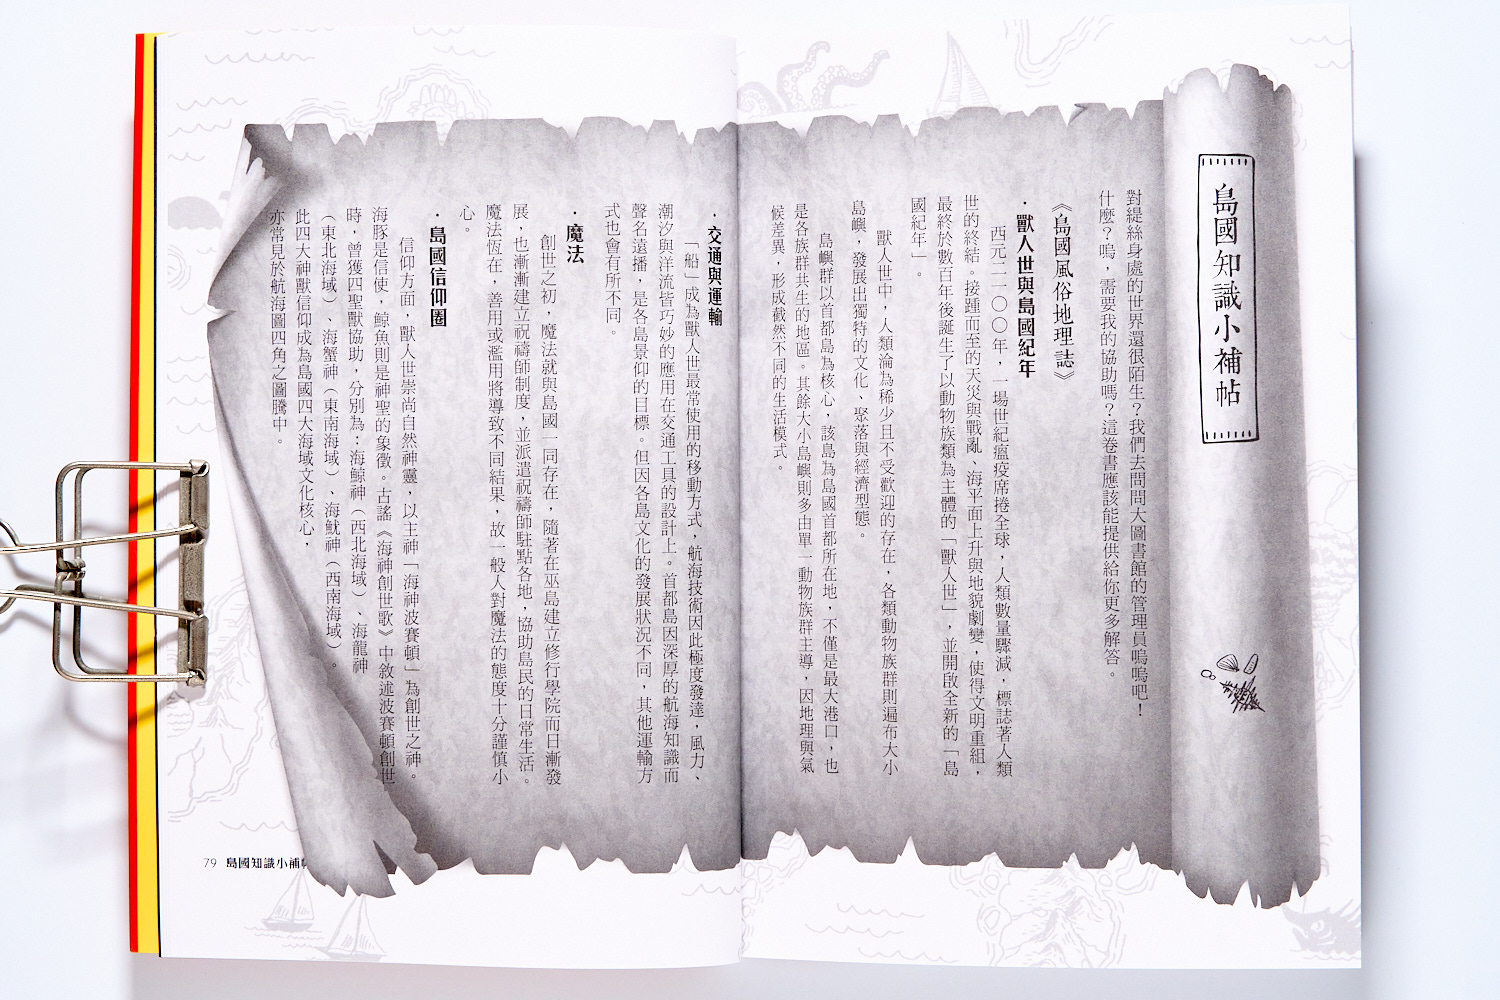 島國知識小補帖
對緹絲身處的世界還很陌生?我們去問問大圖書館的管理員嗚嗚吧!
什麼?嗚,需要我的協助嗎?這卷書應該能提供給你更多解答。
《島國風俗地理誌》
·獸人世與島國紀年
西元二一〇〇年,一場世紀瘟疫席捲全球,人類數量驟減,標誌著人類
世的終結。接踵而至的天災與戰亂、海平面上升與地貌劇變,使得文明重組,
最終於數百年後誕生了以動物族類為主體的「獸人世」,並開啟全新的「島
國紀年」。
獸人世中,人類淪為稀少且不受歡迎的存在,各類動物族群則遍布大小
島嶼,發展出獨特的文化、聚落與經濟型態。
島嶼群以首都島為核心,該島為島國首都所在地,不僅是最大港口,也
是各族群共生的地區。其餘大小島嶼則多由單一動物族群主導,因地理與氣
候差異,形成截然不同的生活模式。
·交通與運輸
「船」成為獸人世最常使用的移動方式,航海技術因此極度發達,風力、
潮汐與洋流皆巧妙的應用在交通工具的設計上。首都島因深厚的航海知識而
聲名遠播,是各島景仰的目標。但因各島文化的發展狀況不同,其他運輸方
式也會有所不同。
·魔法
創世之初,魔法就與島國一同存在,隨著在巫島建立修行學院而日漸發
展,也漸漸建立祝禱師制度,並派遣祝禱師駐點各地,協助島民的日常生活。
魔法恆在,善用或濫用將導致不同結果,故一般人對魔法的態度十分謹慎小
心。
·島國信仰圈
信仰方面,獸人世崇尚自然神靈,以主神「海神波賽頓」為創世之神。
海豚是信使,鯨魚則是神聖的象徵。古謠《海神創世歌》中敘述波賽頓創世
時,曾獲四聖獸協助,分別為:海鯨神(西北海域)、海龍神
(東北海域)、海蟹神(東南海域)、海魷神(西南海域)。
此四大神獸信仰成為島國四大海域文化核心,
亦常見於航海圖四角之圖騰中。
79 島國知識小補帖